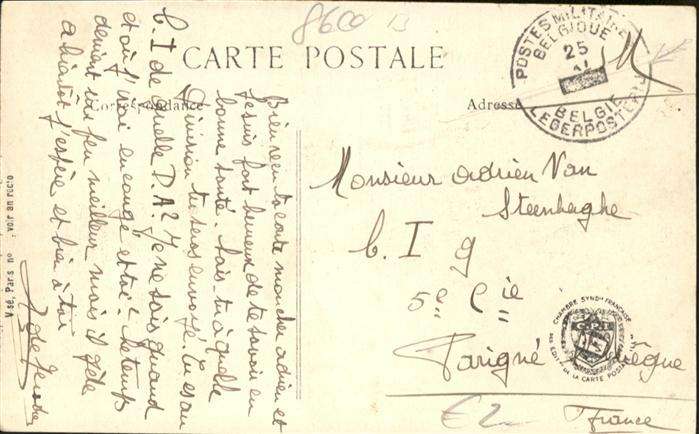 8600 B
CARTE POSTALE
Correspondance
Adresse
POSTES MILITAIRES
BELGIQUE
25
BELGIË
LEGERPOSTERIJ
Bien reçu ta carte mon cher adrien et
je suis fort heureux de te savoir en
bonne santé. Sais tu à quelle
Division tu seras envoyé. Tu es au
C. I de quelle D.A? Je ne sais quand
et où j'irai en congé et toi? Le temps
devient un peu meilleur mais il gèle
a bientôt j'espère et bien à toi
Monsieur Adrien Van
Steenbaghe
C. I 9
5e Cie
Parigné
France
CHAMBRE SYND. FRANÇAISE
DES EDITRS DE LA CARTE POSTALE
€2
Visé, Paris no , voir au recto